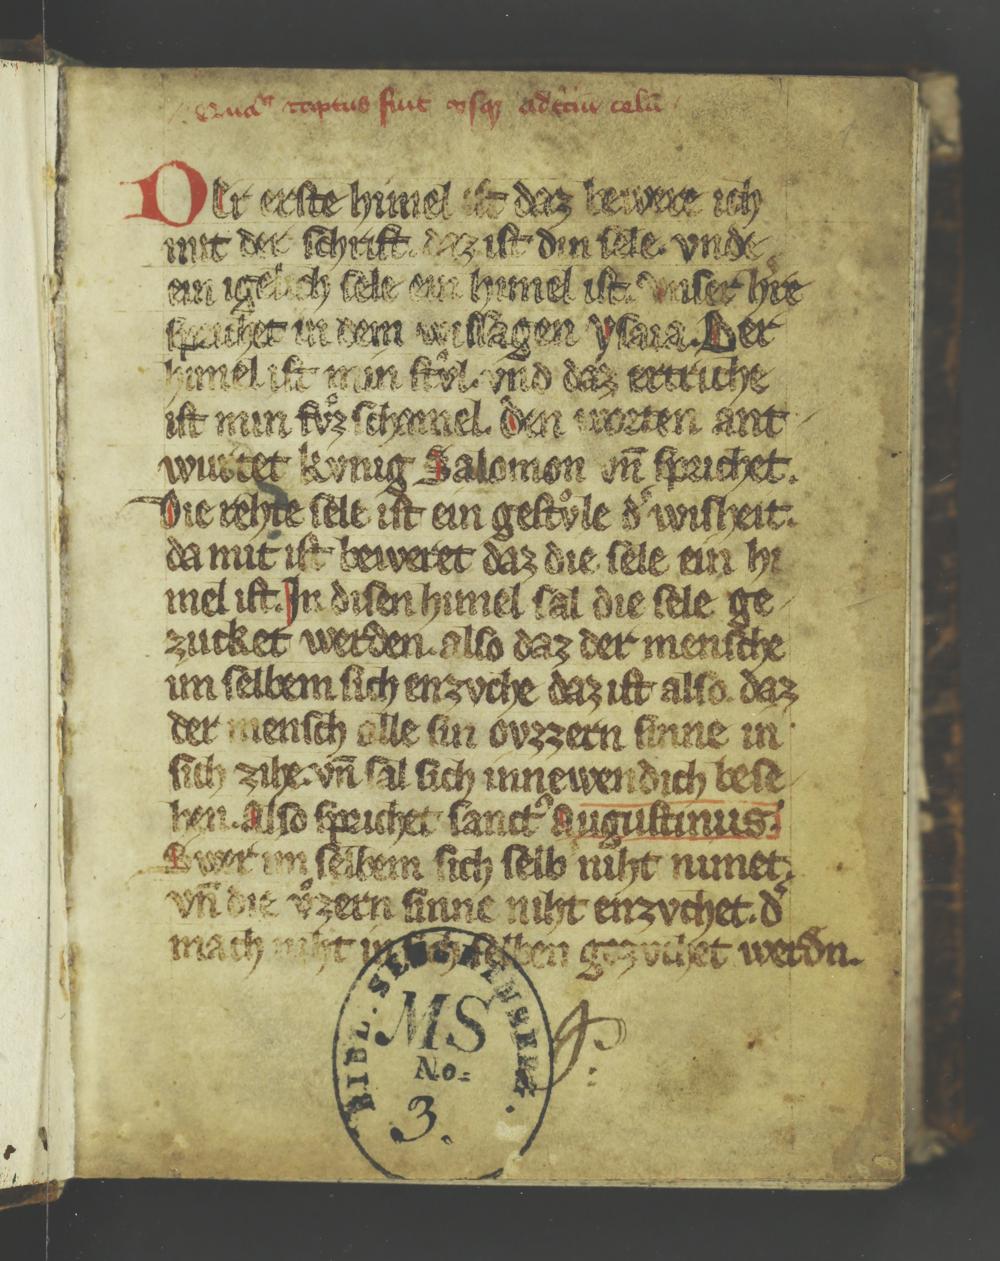 raptus fuit vsq; ad tciu celū
Der erste himel ist daz bewere ich
mit der schrift. daz ist din sele. vnde
ein igelich sele ein himel ist. Vnser h're
sprichet in dem wissagen ysaia. Der
himel ist min stvͦl. vnd daz ertriche
ist min fvͦz schamel. Den worten ant
wurtet kvnig Salomon vn̄ sprichet.
Die rehte sele ist ein gestvͦle d' wisheit.
da mit ist beweret daz die sele ein hi
mel ist. In disen himel sal die sele ge
zucket werden. also daz der mensche
im selbem sich enzvche daz ist also. daz
der mensch alle sin ovzzern sinne in
sich zihe. vn̄ sal sich innewendich bese
hen. Also sprichet sanct' Augustinus.
Swer im selbem sich selb niht nimet.
vn̄ die vͦzern sinne niht enzvchet. d'
mach niht in sich selben gezvchet werdn.
MS
No:
3.